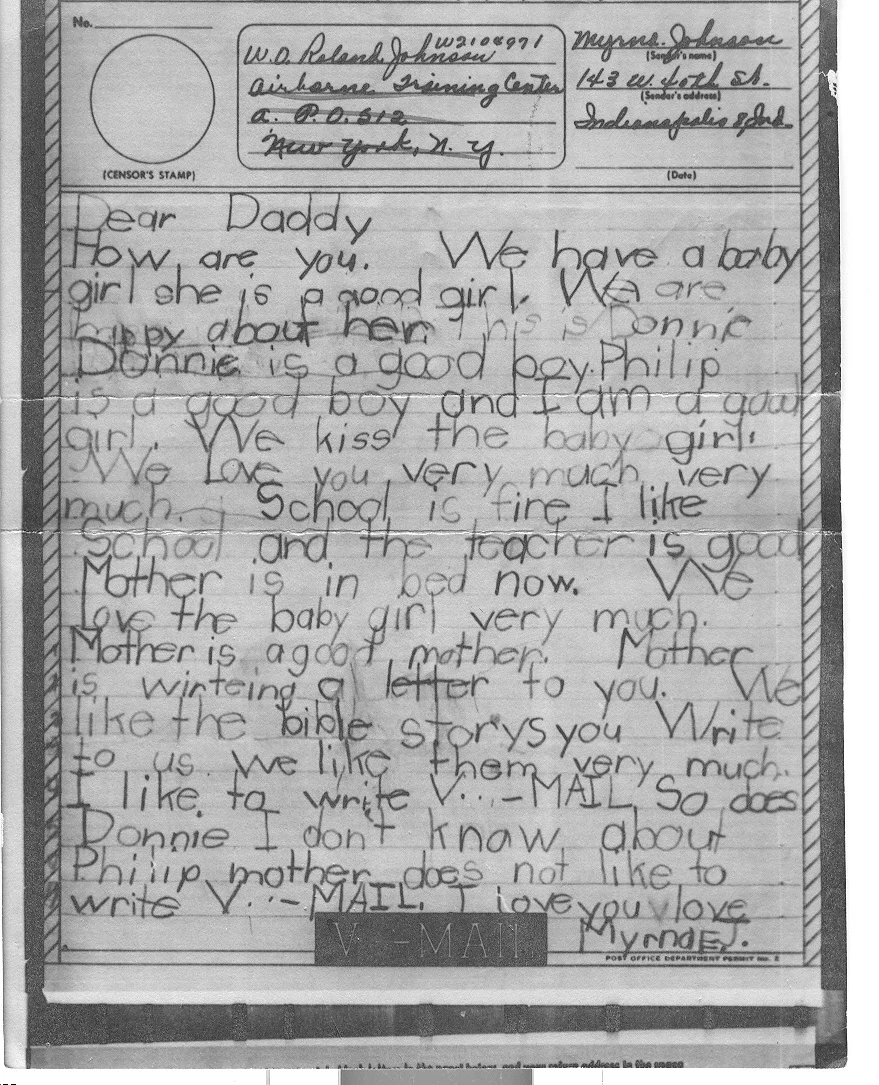 No.
W2109971
W.O. Roland Johnson
Airborne Training Center
A. P.O. 512
New York, N. Y.
Myrna Johnson
(Sender's name)
143 W. 40th St.
(Sender's address)
Indianapolis 8, Ind.
(CENSOR'S STAMP)
(Date)
Dear Daddy
How are you. We have a baby
girl she is a good girl. We are
happy about her. This is Donnie
Donnie is a good boy. Philip
is a good boy and I am a good
girl. We kiss the baby girl.
We Love you very much very
much. School is fine I like
School and the teacher is good
Mother is in bed now. We
love the baby girl very much.
Mother is a good mother. Mother
is wirteing a letter to you. We
like the bible storys you Write
to us we like them very much.
I like to write V...-MAIL So does
Donnie I don't know about
Philip mother does not like to
write V...-MAIL. I love you love
Myrna E.J.
V...-MAIL
POST OFFICE DEPARTMENT PERMIT No. 2